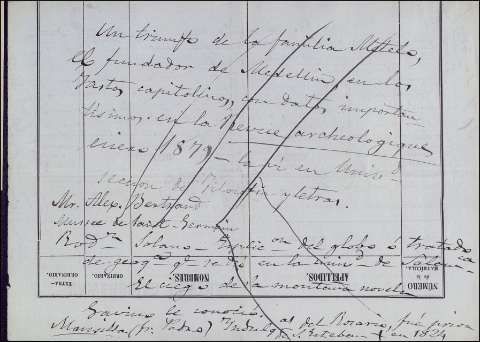 Un triunfo de la familia Metelo,
el fundador de Medellin, en los
Fastos capitolinos, con datos importan-
tisimos en la Revue archeologique
enero 1879 - la vi en Unived
seccion de Filosofia y letras.
Mr. Alex. Bertrand
Musée de Saint-Germain
Rodn Solano - del globo ó tratado
de geoga qe se dió en la de
El ciego de la montaña novela
Gavino le conoció.
Mansilla (Fr. Pedro) del Rosario, fué prior
Sn Esteban en 1824
NÚMERO
de la
MATRÍCULA
APELLIDOS
NOMBRES
ORDINARIO.
EXTRA-
ORDINARIO.